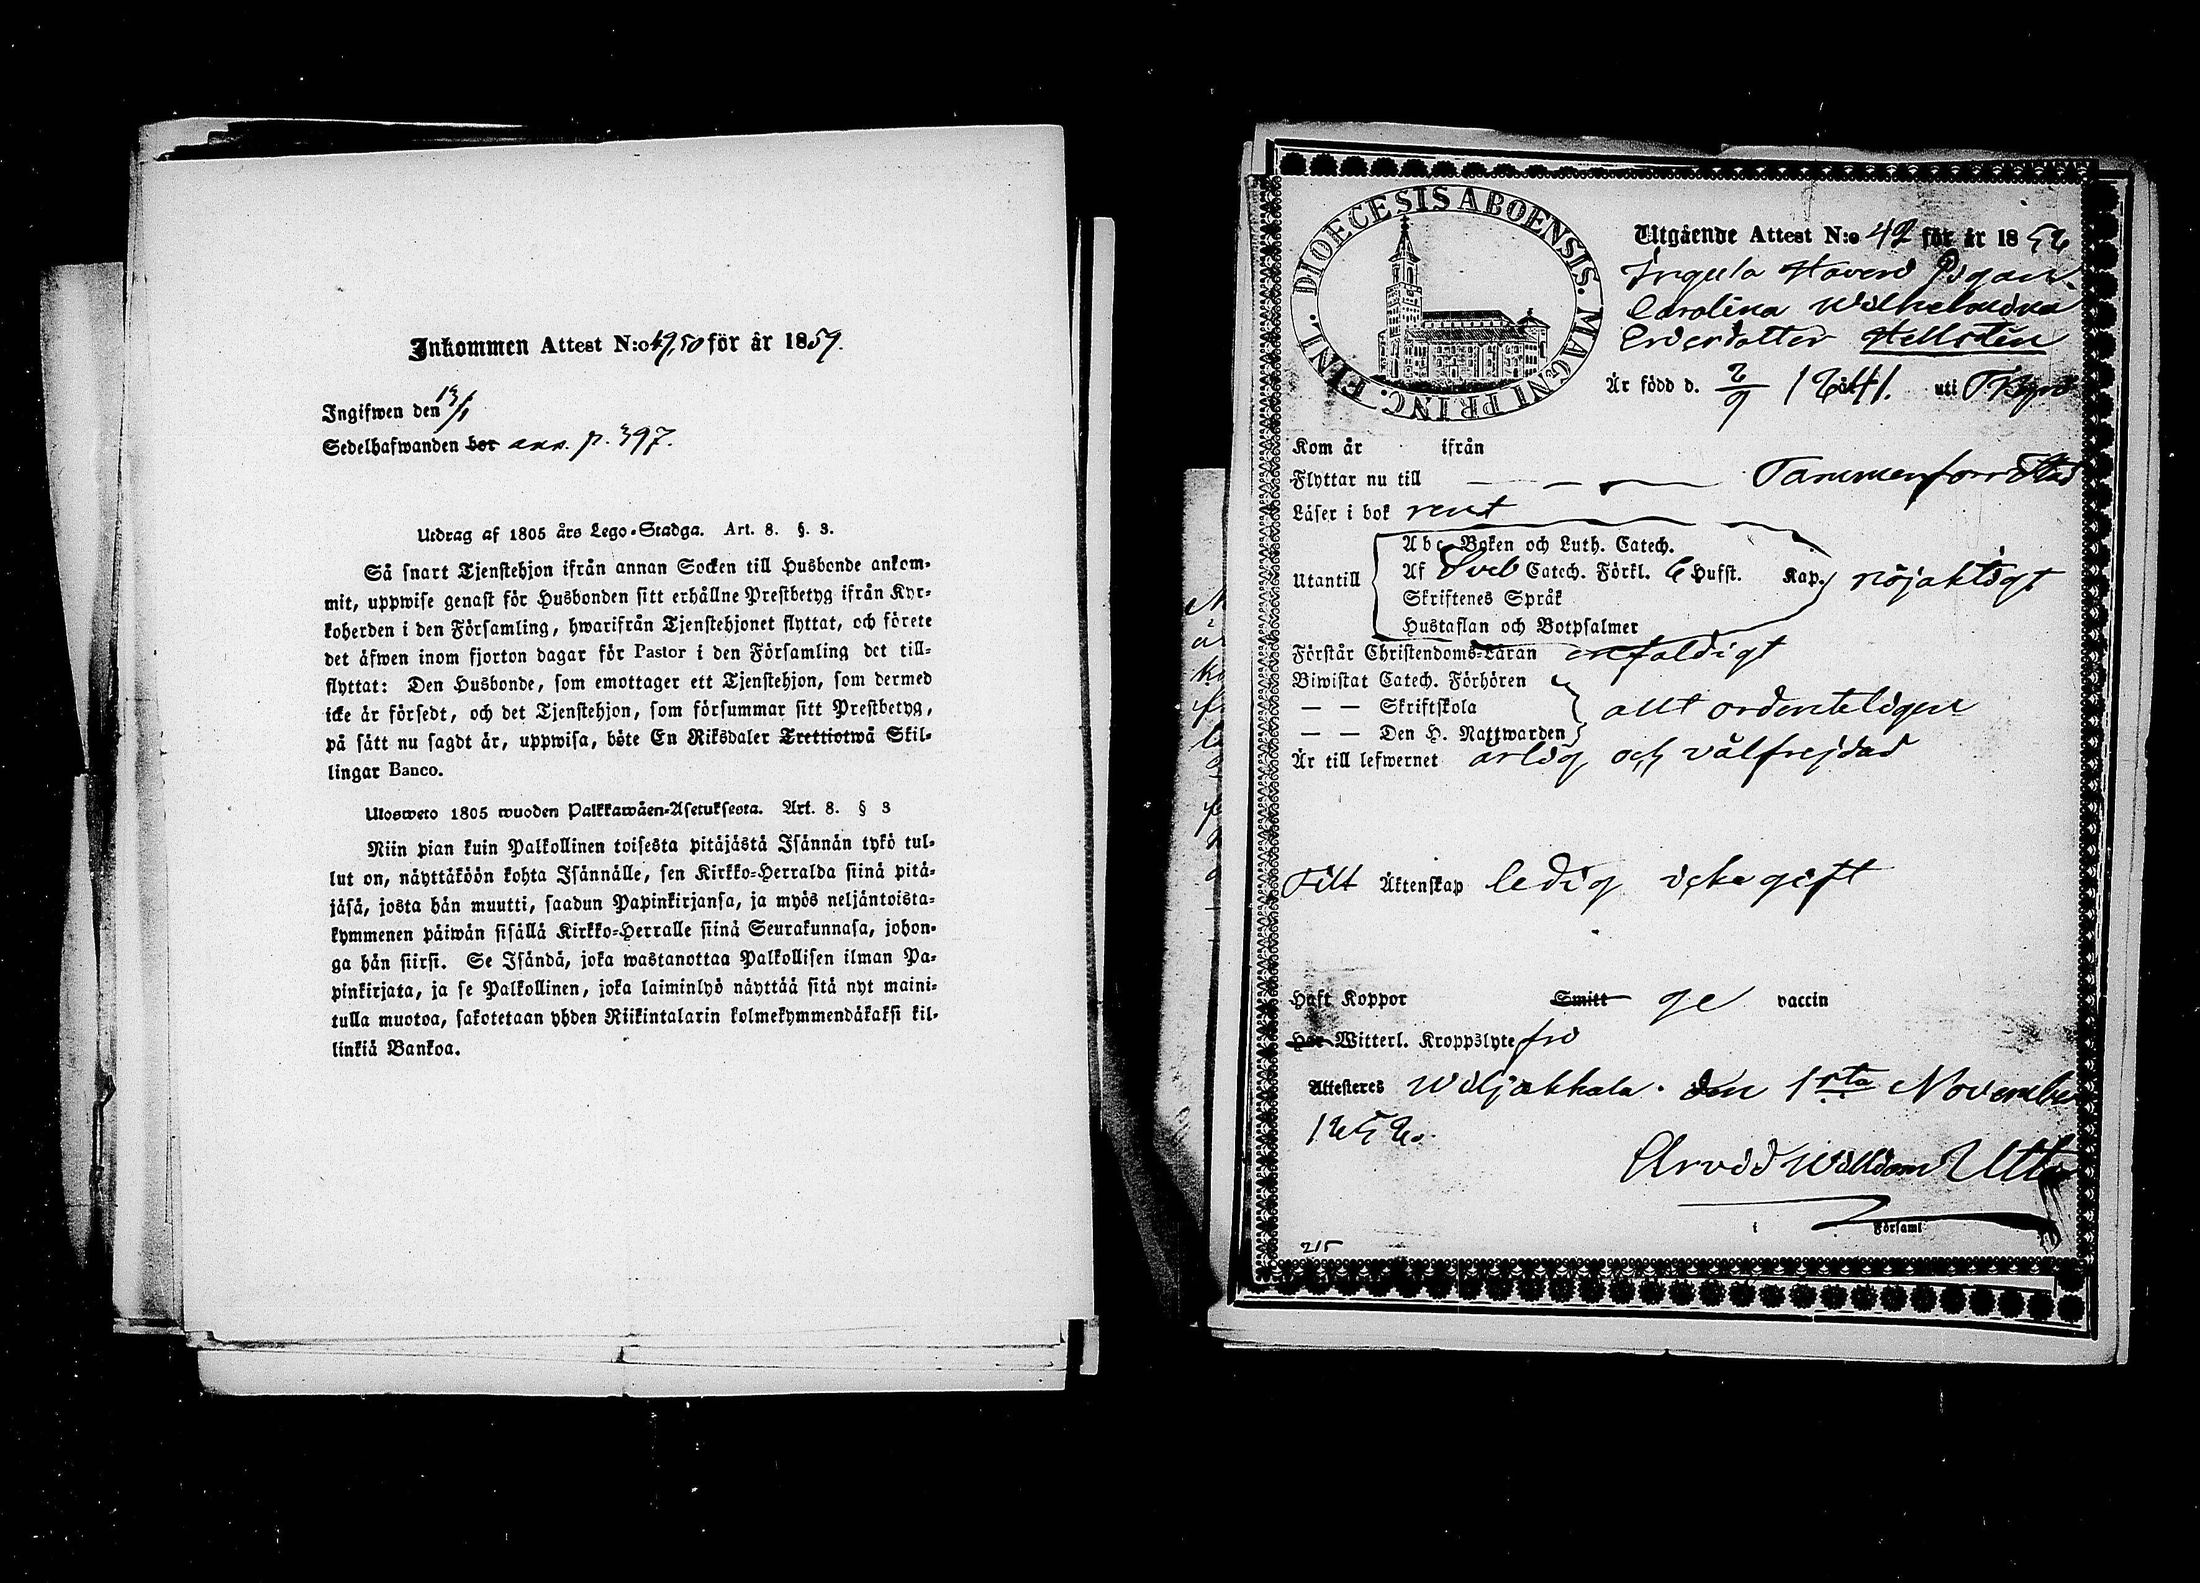 Inkommen Attest N:o 49,50 för år 1859.
Ingifwen den 13/1
Sedelhafwanden bor ann. p. 397.
Utdrag af 1805 års Lego-Stadga. Art. 8. §. 3.
Så snart Tjenstehjon ifrån annan Socken till Husbonde ankom-
mit, uppwise genast för Husbonden sitt erhållne Prestbetyg ifrån Kyr-
koherden i den Församling, hwarifrån Tjenstehjonet flyttat, och förete
det äfwen inom fjorton dagar för Pastor i den Församling det till-
flyttat: Den Husbonde, som emottager ett Tjenstehjon, som dermed
icke är försedt, och det Tjenstehjon, som försummar sitt Prestbetyg,
på sätt nu sagdt är, uppwisa, böte En Riksdaler Trettiotwå Skil-
lingar Banco.
Ulosweto 1805 wuoden Palkkawäen-Asetuksesta. Art. 8. § 3
Niin pian kuin Palkollinen toisesta pitäjästä Isännän tykö tul-
lut on, näyttäköön kohta Isännälle, sen Kirkko-Herralda siinä pitä-
jäsä, josta hän muutti, saadun Papinkirjansa, ja myös neljäntoista-
kymmenen päiwän sisällä Kirkko-Herralle siinä Seurakunnasa, johon-
ga hän siirsi. Se Isändä, joka wastanottaa Palkollisen ilman Pa-
pinkirjata, ja se Palkollinen, joka laiminlyö näyttää sitä nyt maini-
tulla muotoa, sakotetaan yhden Riikintalarin kolmekymmendäkaksi kil-
linkiä Bankoa.
DIOECESIS ABOENSIS. MAGNI PRINC. FINL.
Utgående Attest N:o 42 för år 1858
Pigan
Carolina Wilhelmina
Ericsdotter Hellsten
Är född d. 2/9 1841. uti
Kom år ifrån
Flyttar nu till — — — Tammerfors Stad
Läser i bok rent
Abc-Boken och Luth. Catech.
Utantill Af Sveb Catech. Förkl. 6 Hufst. Kap. nöjaktigt
Skriftenes Språk
Hustaflan och Botpsalmer
Förstår Christendoms-Läran enfaldigt
Biwistat Catech. Förhören
— — Skriftskola allt ordenteligen
— — Den H. Nattwarden
Är till lefwernet ärlig och välfrejdad
Till Äktenskap ledig icke gift
Haft Koppor Smitt ge vaccin
Har Witterl. Kroppslyte fri
Attesteres Wiljakkala den 1sta November
1858.
Arvid William
i Församl
215